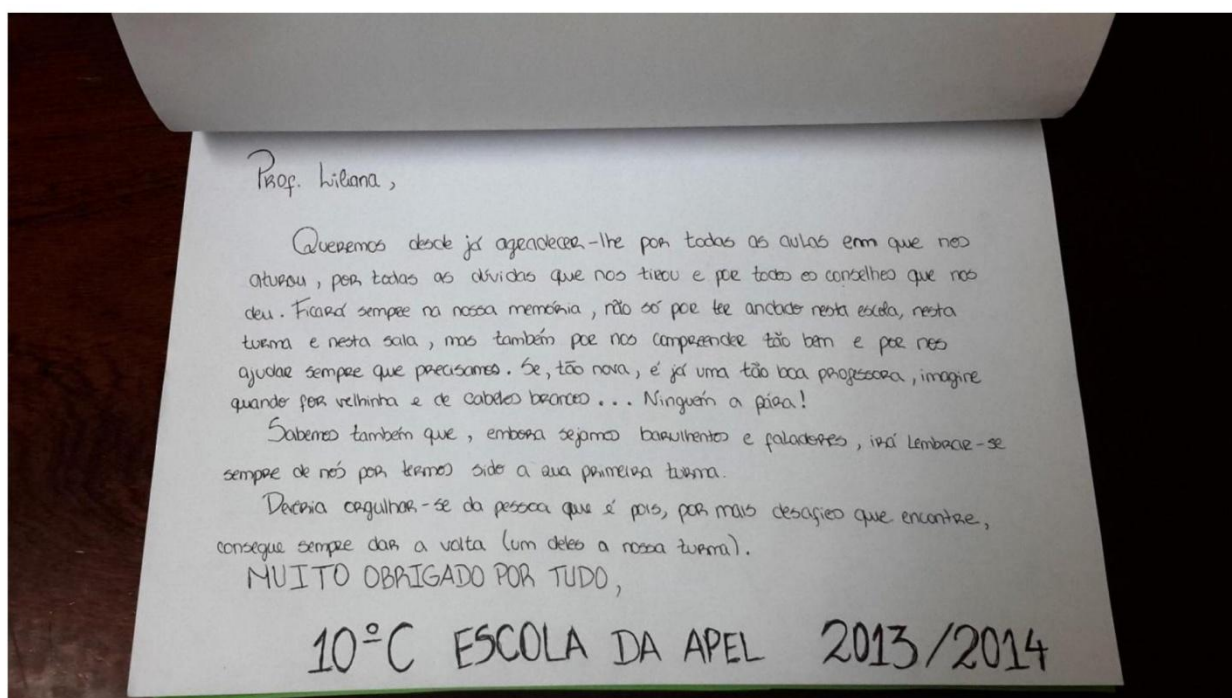 Prof. Liliana,
Queremos desde já agradecer-lhe por todas as aulas em que nos
aturou, por todas as dúvidas que nos tirou e por todos os conselhos que nos
deu. Ficará sempre na nossa memória, não só por ter andado nesta escola, nesta
turma e nesta sala, mas também por nos compreender tão bem e por nos
ajudar sempre que precisamos. Se, tão nova, é já uma tão boa professora, imagine
quando for velhinha e de cabelos brancos... Ninguém a pára!
Sabemos também que, embora sejamos barulhentos e faladores, irá lembrar-se
sempre de nós por termos sido a sua primeira turma.
Deveria orgulhar-se da pessoa que é pois, por mais desafios que encontre,
consegue sempre dar a volta (um deles a nossa turma).
MUITO OBRIGADO POR TUDO,
10ºC ESCOLA DA APEL 2013/2014